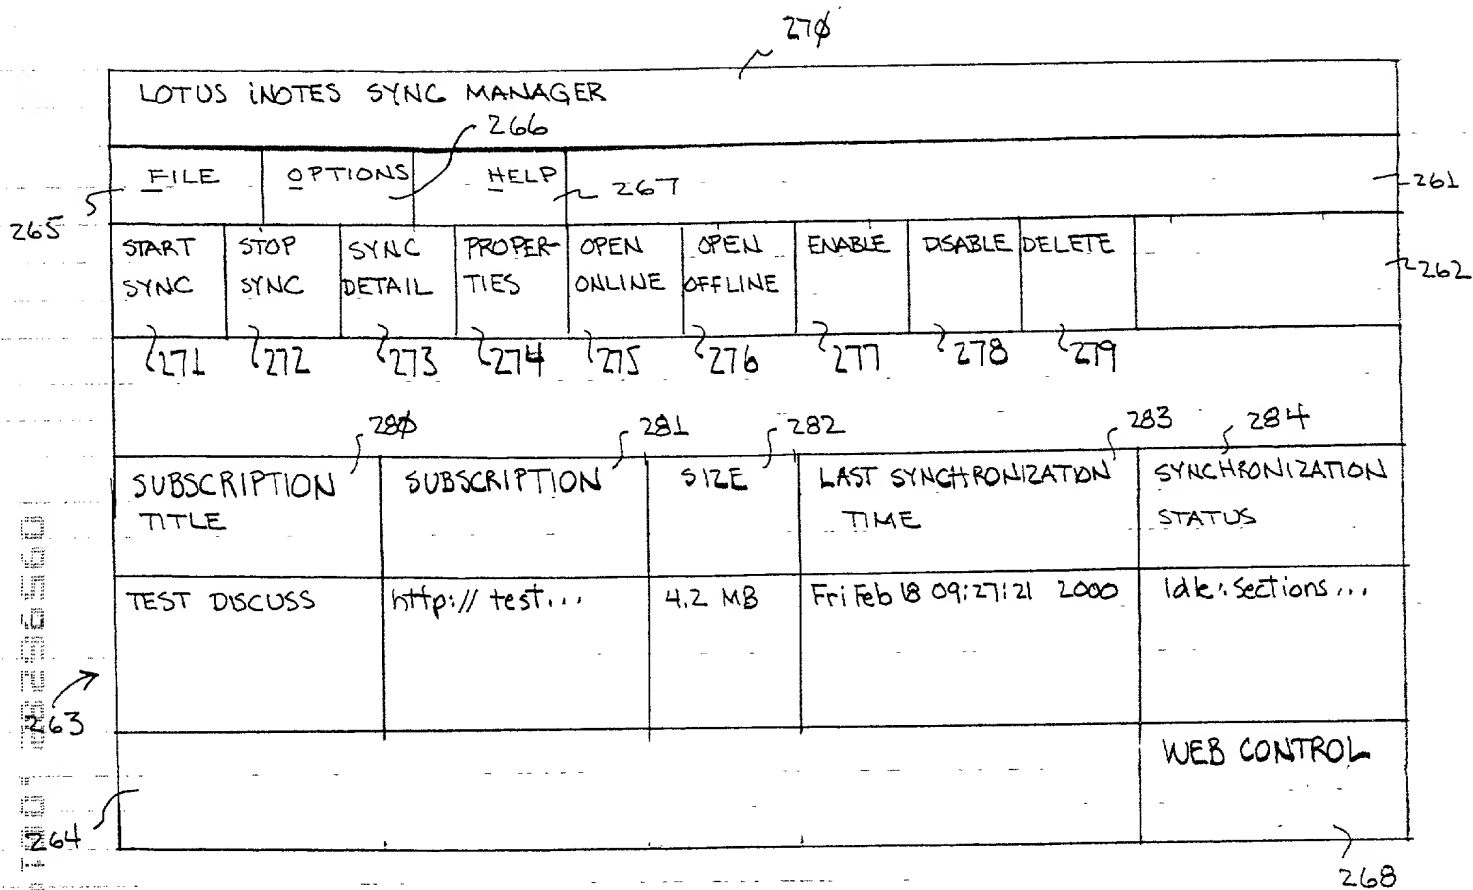 270
LOTUS iNOTES SYNC MANAGER
266
FILE OPTIONS HELP
267
261
265
START SYNC
STOP SYNC
SYNC DETAIL
PROPER-TIES
OPEN ONLINE
OPEN OFFLINE
ENABLE
DISABLE
DELETE
262
271 272 273 274 275 276 277 278 279
280 281 282 283 284
SUBSCRIPTION TITLE
SUBSCRIPTION
SIZE
LAST SYNCHRONIZATION TIME
SYNCHRONIZATION STATUS
TEST DISCUSS
http://test...
4.2 MB
Fri Feb 18 09:27:21 2000
Idle: Sections...
263
WEB CONTROL
264
268